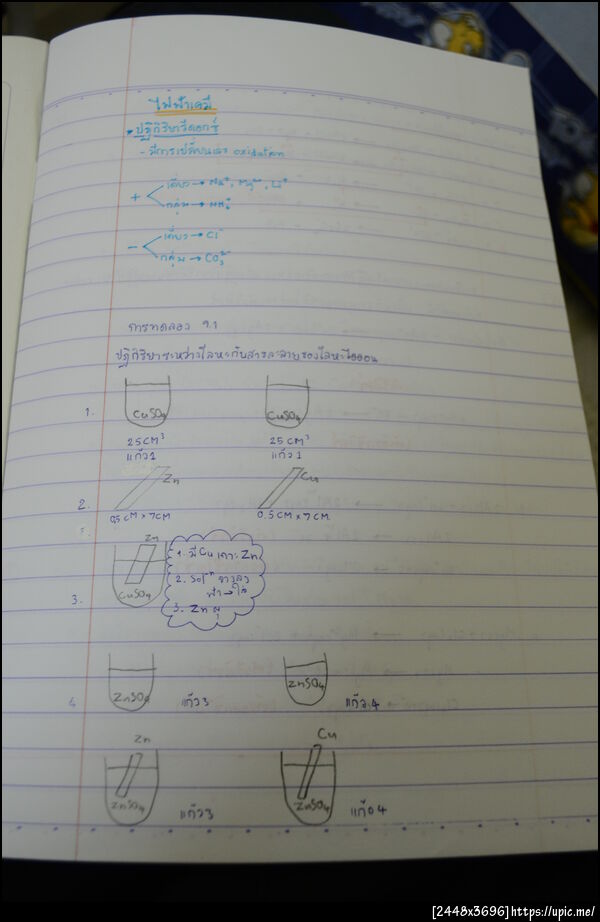 ไฟฟ้าเคมี
* ปฏิกิริยารีดอกซ์
- มีการเปลี่ยนเลข oxidation
+ เดี่ยว → Na⁺, Mg²⁺, Li⁺
กลุ่ม → NH₄⁺
- เดี่ยว → Cl⁻
กลุ่ม → CO₃²⁻
การทดลอง 9.1
ปฏิกิริยาระหว่างโลหะกับสารละลายของโลหะไอออน
1. CuSO₄ CuSO₄
25 CM³ 25 CM³
แก้ว 1 แก้ว 1
Zn Cu
2. 0.5 CM × 7 CM 0.5 CM × 7 CM
Zn
1. มี Cu เกาะ Zn
2. Solⁿ จางลง
ฟ้า → ใส
3. CuSO₄
3. Zn ผุ
4. ZnSO₄ แก้ว 3 ZnSO₄ แก้ว 4
Zn Cu
ZnSO₄ แก้ว 3 ZnSO₄ แก้ว 4
[2448x3696] https://upic.me/